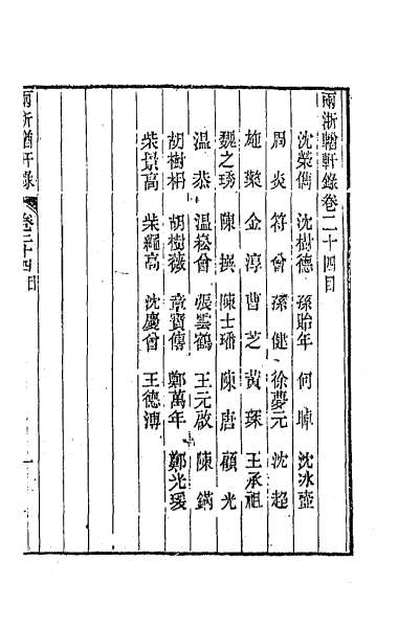 兩浙輶軒錄卷二十四目
沈榮儁　沈樹德　孫貽年　何焯　沈冰壺
周炎　符曾　孫健　徐夢元　沈超
施槷　金淳　曹芝　黃琛　王承祖
魏之琇　陳撰　陳士璠　陳唐　顧光
溫恭　溫菘曾　張雲鶴　王元啟　陳鏑
胡樹枏　胡樹薇　章寶傳　鄭萬年　鄭光瑗
柴景高　柴繩高　沈慶曾　王德溥
兩浙輶軒錄　卷二十四目